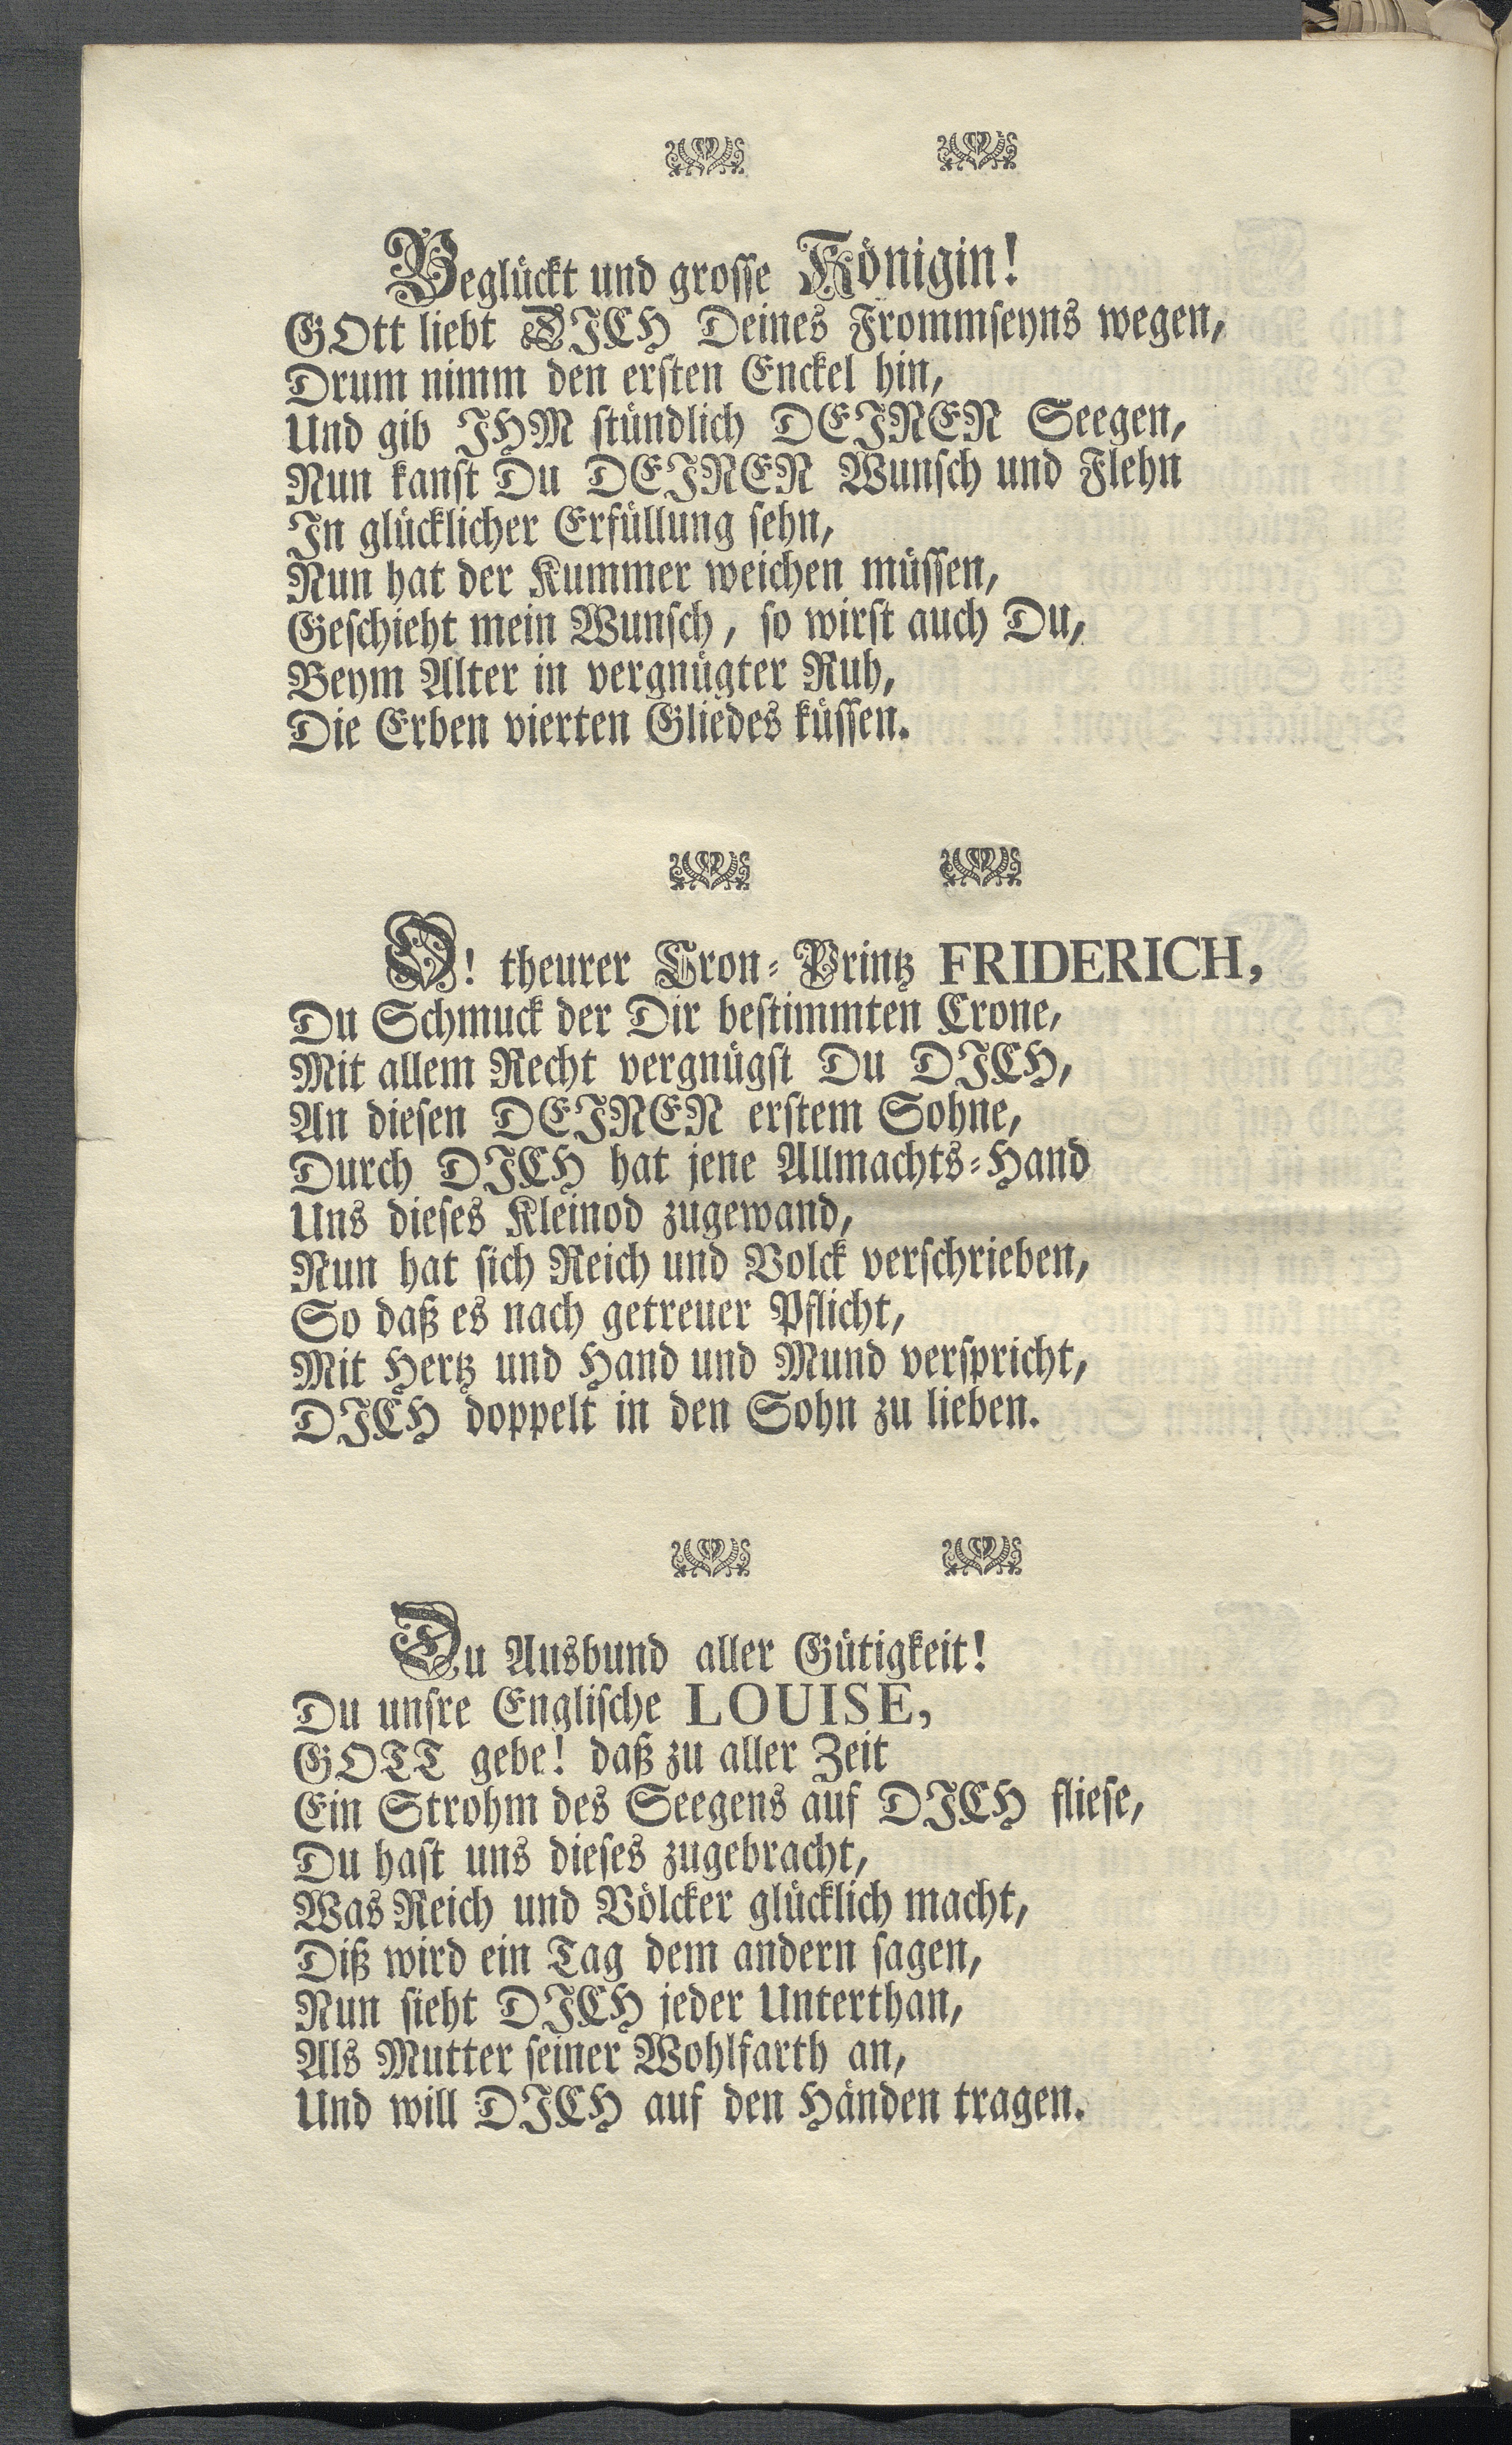 Beglückt und grosse Königin!
GOtt liebt DICH Deines Frommseyns wegen,
Drum nimm den ersten Enckel hin,
Und gib IHM stündlich DEINEN Seegen,
Nun kanst Du DEINEN Wunsch und Flehn
In glücklicher Erfüllung sehn,
Nun hat der Kummer weichen müssen,
Geschieht mein Wunsch, so wirst auch Du,
Beym Alter in vergnügter Ruh,
Die Erben vierten Gliedes küssen.
O! theurer Cron-Printz FRIDERICH,
Du Schmuck der Dir bestimmten Crone,
Mit allem Recht vergnügst Du DICH,
An diesen DEINEN erstem Sohne,
Durch DICH hat jene Allmachts-Hand
Uns dieses Kleinod zugewand,
Nun hat sich Reich und Volck verschrieben,
So daß es nach getreuer Pflicht,
Mit Hertz und Hand und Mund verspricht,
DICH doppelt in den Sohn zu lieben.
Du Ausbund aller Gütigkeit!
Du unsre Englische LOUISE,
GOTT gebe! daß zu aller Zeit
Ein Strohm des Seegens auf DICH fliese,
Du hast uns dieses zugebracht,
Was Reich und Völcker glücklich macht,
Diß wird ein Tag dem andern sagen,
Nun sieht DICH jeder Unterthan,
Als Mutter seiner Wohlfarth an,
Und will DICH auf den Händen tragen.